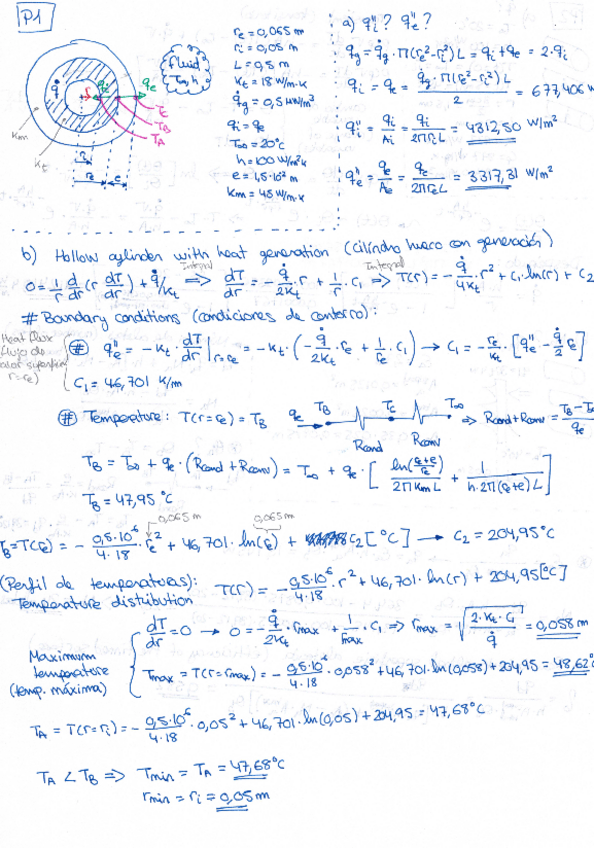 P1
fluid
T∞, h
q̇
r
qi
qe
TC
TB
TA
km
kt
ri
re
e
re = 0,065 m
ri = 0,05 m
L = 0,5 m
kt = 18 W/m·K
q̇g = 0,5 MW/m³
qi = qe
T∞ = 20°C
h = 100 W/m²K
e = 1,5·10⁻² m
km = 45 W/m·K
a) q''i? q''e?
qg = q̇g · Π(re²-ri²) L = qi + qe = 2·qi
qi = qe = q̇g · Π(re²-ri²) L / 2 = 677,406 W
q''i = qi/Ai = qi/2ΠriL = 4312,50 W/m²
q''e = qe/Ae = qe/2ΠreL = 3317,31 W/m²
b) Hollow cylinder with heat generation (cilindro hueco con generación)
0 = 1/r d/dr (r dT/dr) + q̇/kt ⇒ Integral dT/dr = - q̇/2kt · r + 1/r · C1 ⇒ Integral T(r) = - q̇/4kt · r² + C1·ln(r) + C2
# Boundary conditions (condiciones de contorno):
Heat flux
flujo de
calor superficial
r=re)
# q''e = -kt · dT/dr | r=re = -kt · (- q̇/2kt · re + 1/re · C1) → C1 = - re/kt · [q''e - q̇/2 re]
C1 = 46,701 K/m
# Temperature: T(r=re) = TB
qe TB TC T∞
Rcond Rconv
⇒ Rcond + Rconv = TB - T∞ / qe
TB = T∞ + qe · (Rcond + Rconv) = T∞ + qe · [ ln((re+e)/re) / 2ΠkmL + 1 / h·2Π(re+e)L ]
TB = 47,95 °C
0,065 m 0,065 m
TB = T(re) = - 0,5·10⁶/4·18 · re² + 46,701 · ln(re) + C2 [°C] → C2 = 204,95°C
(Perfil de temperaturas):
Temperature distribution
T(r) = - 0,5·10⁶/4·18 · r² + 46,701 · ln(r) + 204,95 [°C]
dT/dr = 0 → 0 = - q̇/2kt · rmax + 1/rmax · C1 ⇒ rmax = √(2·kt·C1/q̇) = 0,058 m
Maximum
temperature
(temp. máxima)
Tmax = T(r=rmax) = - 0,5·10⁶/4·18 · 0,058² + 46,701·ln(0,058) + 204,95 = 48,62°C
TA = T(r=ri) = - 0,5·10⁶/4·18 · 0,05² + 46,701 · ln(0,05) + 204,95 = 47,68°C
TA < TB ⇒ Tmin = TA = 47,68°C
rmin = ri = 0,05 m